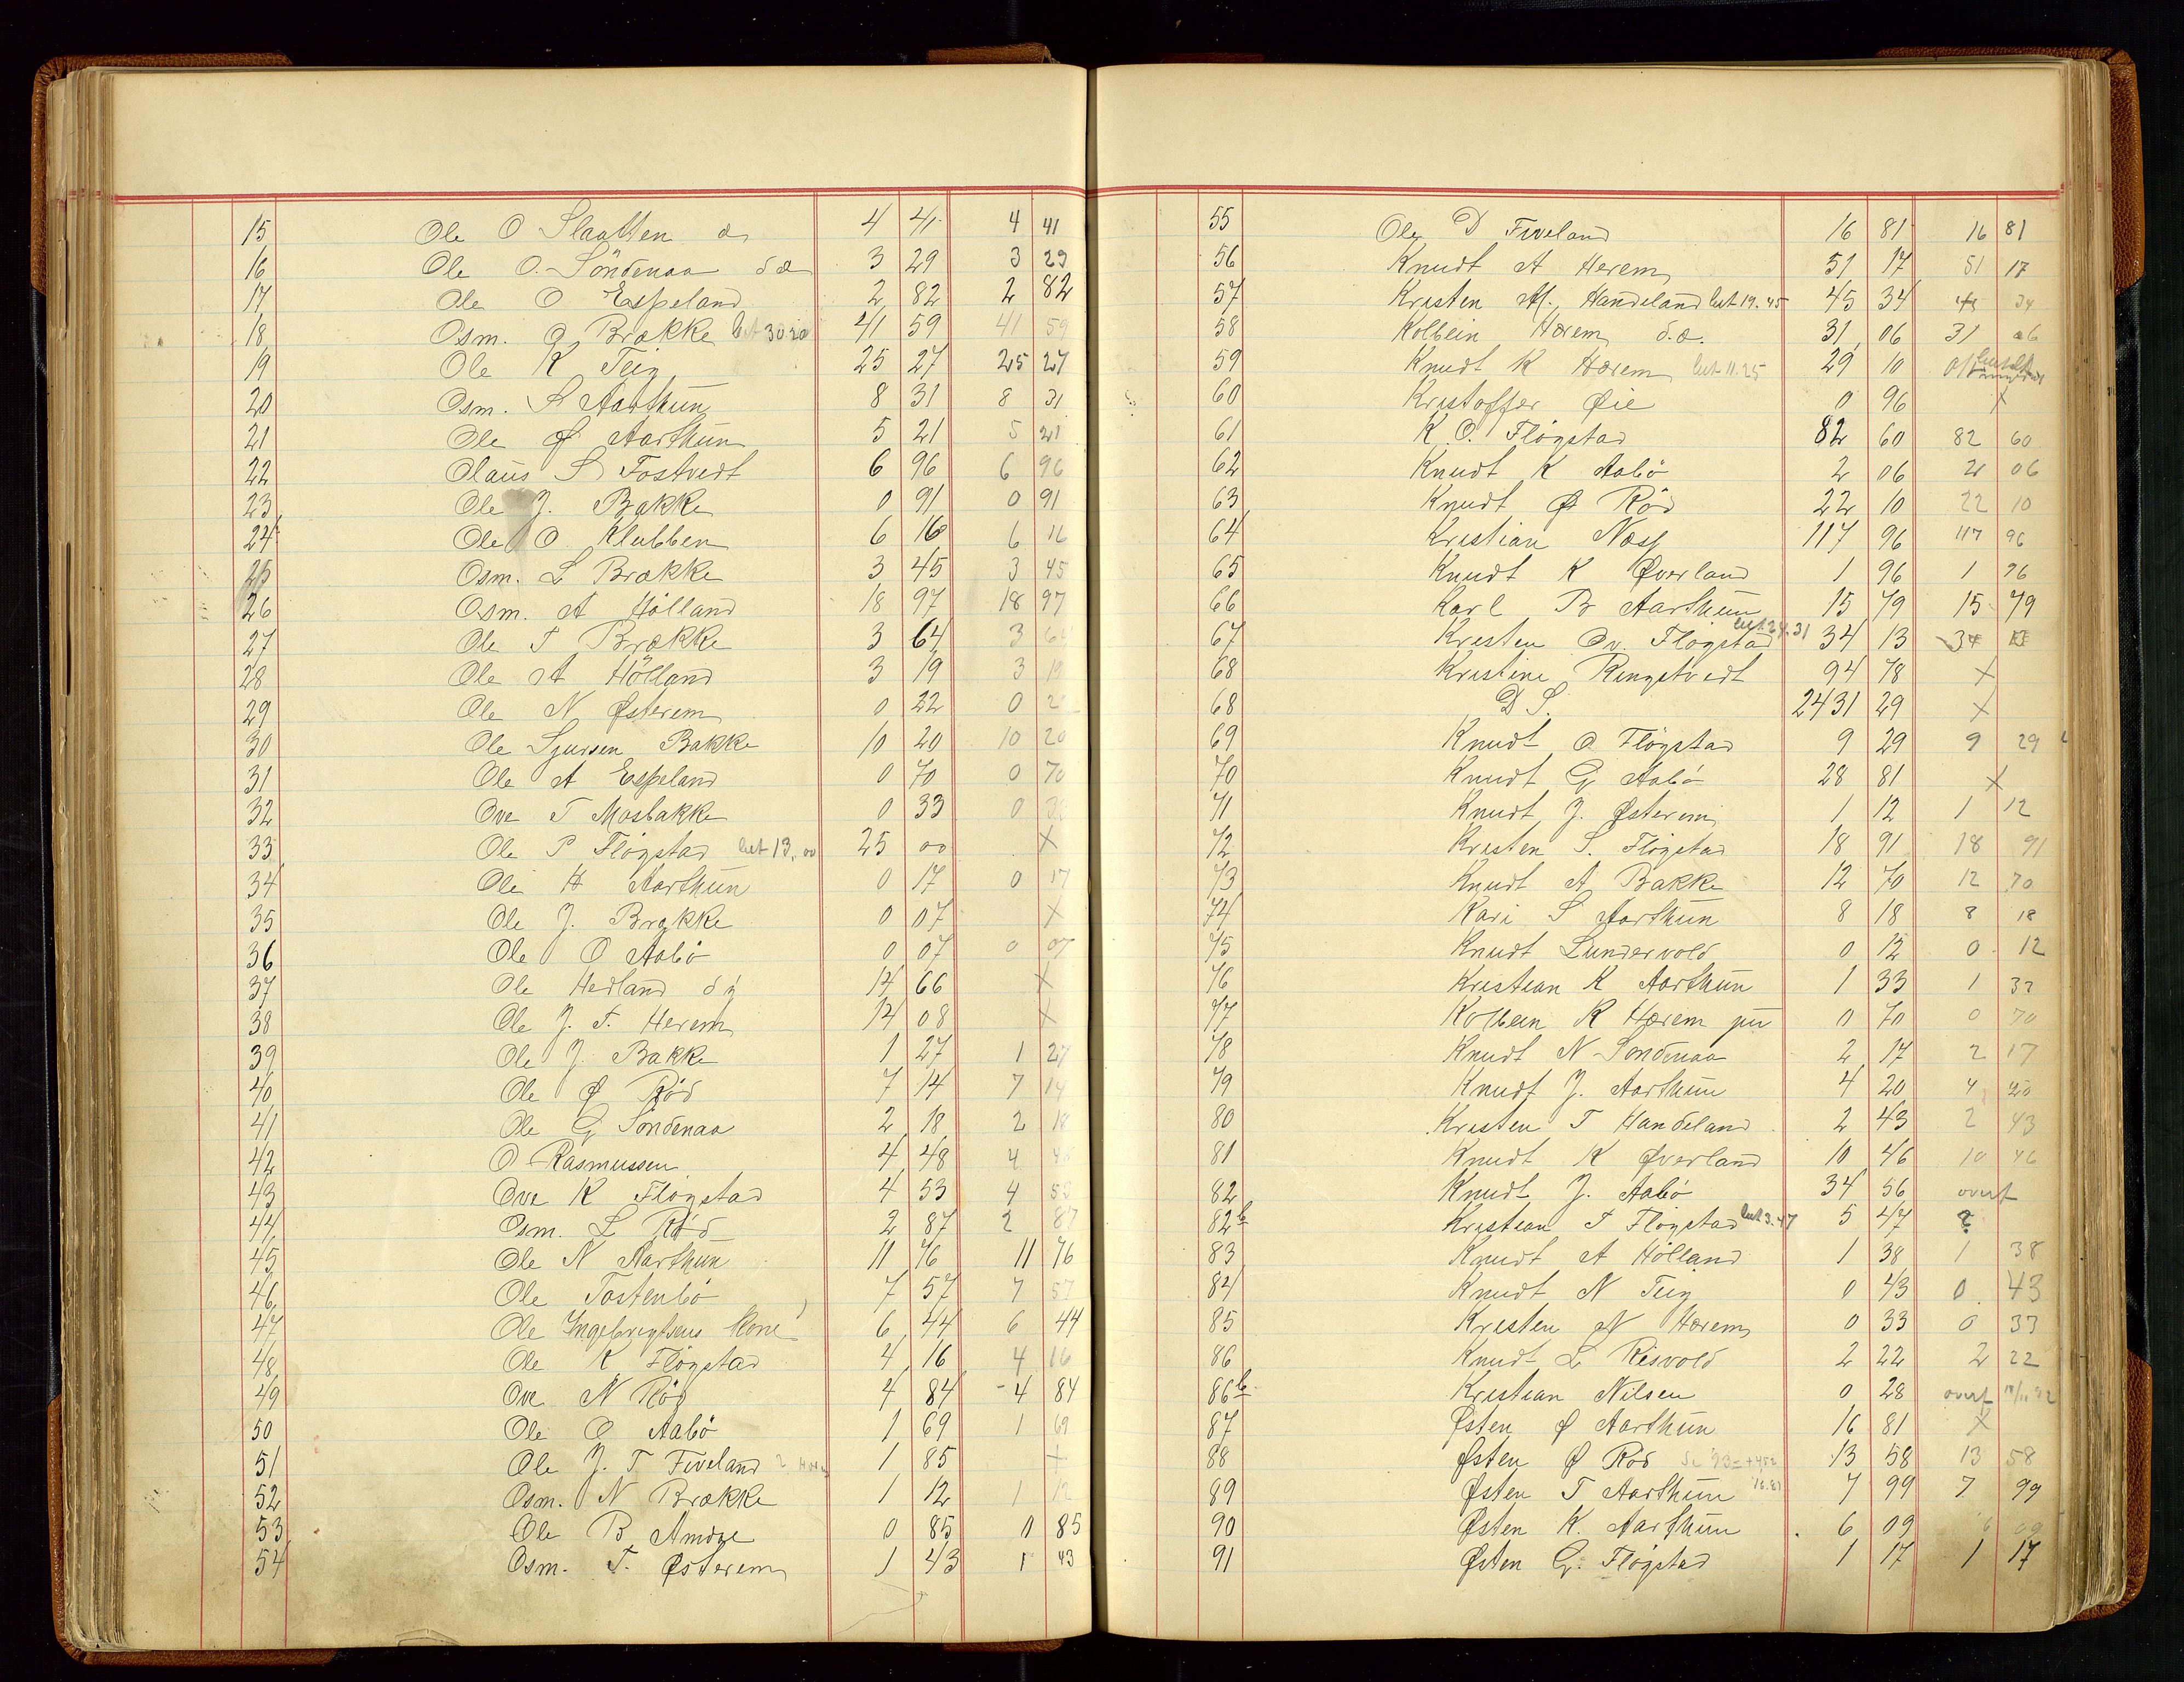 15 Ole O Slaatten d. 4 41 4 41
16 Ole O. Söndenaa d æ 3 29 3 29
17 Ole O Espeland 2 82 2 82
18 Osm. O Brække 30.20 41 59 41 59
19 Ole K Teig 25 27 25 27
20 Osm. S Aarthun 8 31 8 31
21 Ole Ø Aarthun 5 21 5 21
22 Olaus S Tostvedt 6 96 6 96
23 Ole J. Bakke 0 91 0 91
24 Ole O Klubben 6 16 6 16
25 Osm. L Brække 3 45 3 45
26 Osm. A Hölland 18 97 18 97
27 Ole T Brække 3 64 3 64
28 Ole A Hölland 3 19 3 19
29 Ole N Østerem 0 22 0 2
30 Ole Sjursen Bakke 10 20 10 20
31 Ole A Espeland 0 70 0 70
32 Ove T Mosbakke 0 33 0 33
33 Ole P Flögstad 13,00 25 00 X
34 Ole H Aarthun 0 17 0 17
35 Ole J. Brække 0 07 X
36 Ole O Aabö 0 07 0 07
37 Ole Hedland d y 14 66 X
38 Ole J. T. Herem 14 08 X
39 Ole J. Bakke 1 27 1 27
40 Ole Ø Röd 7 14 7 14
41 Ole G Söndenaa 2 18 2 18
42 O Rasmussen 4 48 4 48
43 Ove K Flögstad 4 53 4 53
44 Osm. L Röd 2 87 2 87
45 Ole N Aarthun 11 76 11 76
46 Ole Tostenbö 7 57 7 57
47 Ole Ingebrigtsens Kone 6 44 6 44
48 Ole K Flögstad 4 16 4 16
49 Ove N Röd 4 84 4 84
50 Ole O Aabö 1 69 1 69
51 Ole J. T Fiveland 1 85 +
52 Osm. N Brække 1 12 1 12
53 Ole B Amdge 0 85 0 85
54 Osm. T. Østerem 1 43 1 43
55 Ole D Fiveland 16 81 16 81
56 Knudt A Herem 51 17 51 17
57 Kristen M. Handeland 19.45 45 34 45 34
58 Kolbein Hærem d.æ. 31 06 31 06
59 Knudt K Hærem 11.25 29 10
60 Kristoffer Øie 0 96 X
61 K. O. Flögstad 82 60 82 60
62 Knudt K Aabö 2 06 2 06
63 Knudt Ø Röd 22 10 22 10
64 Kristian Næss 117 96 117 96
65 Knudt K Øverland 1 96 1 96
66 Karl B Aarthun 15 79 15 79
67 Kristen Ov. Flögstad 24.31 34 13 34 13
68 Kristine Ringstvedt 94 78 X
68 D S. 2431 29 X
69 Knudt O Flögstad 9 29 9 29
70 Knudt G Aabö 28 81 X
71 Knudt J. Østerem 1 12 1 12
72 Kristen S. Flögstad 18 91 18 91
73 Knudt A Bakke 12 70 12 70
74 Kari S Aarthun 8 18 8 18
75 Knudt Lundervold 0 12 0 12
76 Kristian K Aarthun 1 33 1 33
77 Kolbein K Hærem jun 0 70 0 70
78 Knudt N Söndenaa 2 17 2 17
79 Knudt J. Aarthun 4 20 4 20
80 Kristen T Handeland 2 43 2 43
81 Knudt K Øverland 10 46 10 46
82 Knudt J. Aabö 34 56 overf
82b Kristian T Flögstad 3.47 5 47 ?
83 Knudt A Hölland 1 38 1 38
84 Knudt N Teig 0 43 0 43
85 Kristen N Hærem 0 33 0 33
86 Knudt L Risvold 2 22 2 22
86b Kristian Nilsen 0 28 overf
87 Østen Ø Aarthun 16 81 X
88 Østen Ø Röd 13 58 13 58
89 Østen T Aarthun 16.81 7 99 7 99
90 Østen K. Aarthun 6 09 6 09
91 Østen G. Flögstad 1 17 1 17